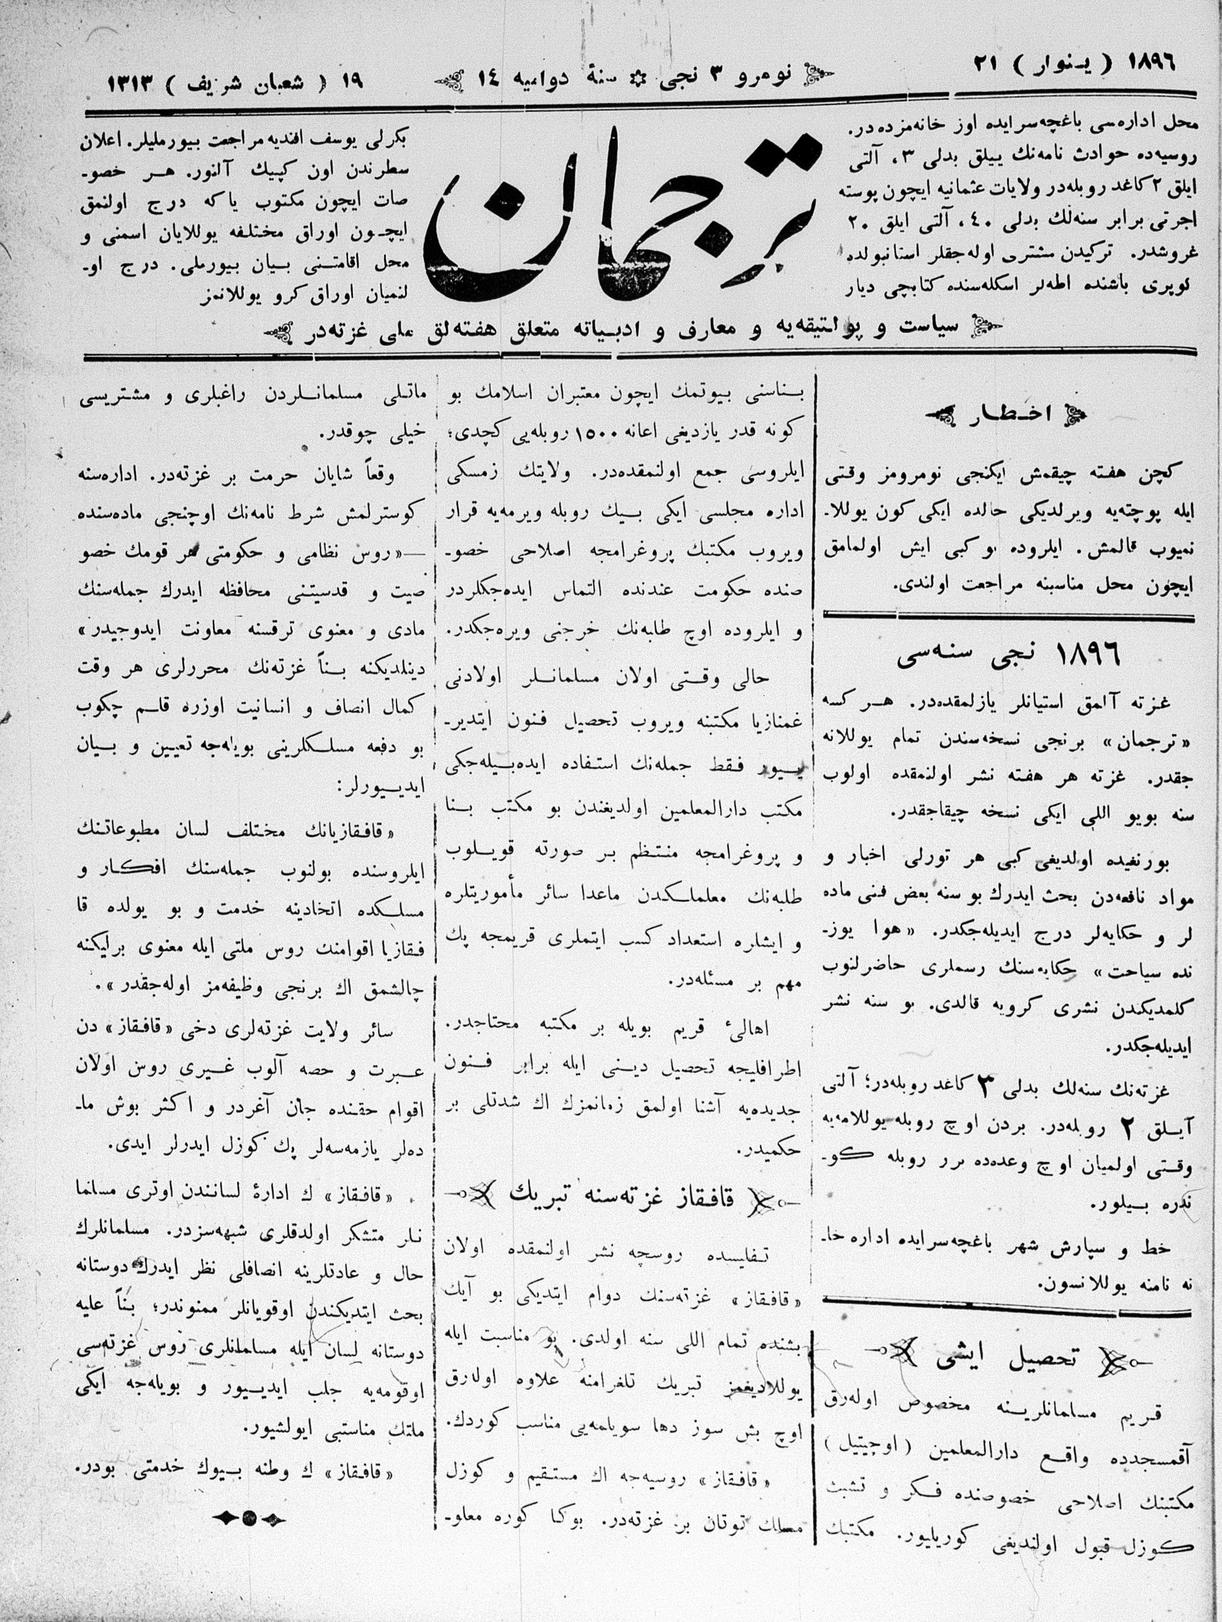 ١٨٩٦ ( ينوار ) ٢١
نومرو ٣ نجى ✲ سنهٔ دواميه ١٤
١٩ ( شعبان شريف ) ١٣١٣
محل اداره‌سى باغچه‌سرايده اوز خانه‌مزده‌در.
روسيه‌ده حوادث نامه‌نك ييلق بدلى ٣، آلتى
ايلق ٢ كاغد روبله‌در ولايات عثمانيه ايچون پوسته
اجرتى برابر سنه‌لك بدلى ٤٠، آلتى ايلق ٢٠
غروشدر. تركيدن مشترى اوله‌جقلر استانبولده
كوپرى باشنده اطه‌لر اسكله‌سنده كتابچى ديار
ترجمان
بكرلى يوسف افنديه مراجعت بيورمليلر. اعلان
سطرندن اون كپيك آلنور. هر خصو-
صات ايچون مكتوب ياكه درج اولنمق
ايچون اوراق مختلفه يوللايان اسمنى و
محل اقامتنى بيان بيورملى. درج او-
لنميان اوراق كرو يوللانمز
سياست و پولتيقه‌يه و معارف و ادبياته متعلق هفته‌لق ملى غزته‌در
اخطار
كچن هفته چيقمش ايكنجى نومرومز وقتى
ايله پوچته‌يه ويرلديكى حالده ايكى كون يوللا-
نميوب قالمش. ايلروده بو كبى ايش اولمامق
ايچون محل مناسبنه مراجعت اولندى.
١٨٩٦ نجى سنه‌سى
غزته آلمق استيانلر يازلمقده‌در. هر كسه
«ترجمان» برنجى نسخه‌سندن تمام يوللانه
جقدر. غزته هر هفته نشر اولنمقده اولوب
سنه بويو اللى ايكى نسخه چيقاجقدر.
بورنغيده اولديغى كبى هر تورلى اخبار و
مواد نافعه‌دن بحث ايدرك بو سنه بعض فنى ماده
لر و حكايه‌لر درج ايديله‌جكدر. «هوا يوز-
نده سياحت» حكايه‌سنك رسملرى حاضرلنوب
كلمديكندن نشرى كرويه قالدى. بو سنه نشر
ايديله‌جكدر.
غزته‌نك سنه‌لك بدلى ٣ كاغد روبله‌در؛ آلتى
آيلق ٢ روبله‌در. بردن اوچ روبله يوللامه‌يه
وقتى اولميان اوچ وعده‌ده برر روبله كو-
ندره بيلور.
خط و سپارش شهر باغچه‌سرايده اداره خا-
نه نامنه يوللانسون.
تحصيل ايشى
قريم مسلمانلرينه مخصوص اوله‌رق
آقمسجدده واقع دارالمعلمين (اوچيتيل)
مكتبنك اصلاحى خصوصنده فكر و تشبث
كوزل قبول اولنديغى كوريليور. مكتبك
بناسنى بيوتمك ايچون معتبران اسلامك بو
كونه قدر يازديغى اعانه ١٥٠٠ روبله‌يى كچدى؛
ايلروسى جمع اولنمقده‌در. ولايتك زمسكى
اداره مجلسى ايكى بيك روبله ويرمه‌يه قرار
ويروب مكتبك پروغرامجه اصلاحى خصو-
صنده حكومت عندنده التماس ايده‌جكلردر
و ايلروده اوچ طلبه‌نك خرجنى ويره‌جكدر.
حالى وقتى اولان مسلمانلر اولادنى
غمنازيا مكتبنه ويروب تحصيل فنون ايتدير-
ييور فقط جمله‌نك استفاده ايده‌بيله‌جكى
مكتب دارالمعلمين اولديغندن بو مكتب بنا
و پروغرامجه منتظم بر صورته قويلوب
طلبه‌نك معلملكدن ماعدا سائر مأموريتلره
و ايشاره استعداد كسب ايتملرى قريمجه پك
مهم بر مسئله‌در.
اهالىٔ قريم بويله بر مكتبه محتاجدر.
اطرافليجه تحصيل دينى ايله برابر فنون
جديده‌يه آشنا اولمق زمانمزك اك شدتلى بر
حكميدر.
قافقاز غزته‌سنه تبريك
تفليسده روسچه نشر اولنمقده اولان
«قافقاز» غزته‌سنك دوام ايتديكى بو آيك
بشنده تمام اللى سنه اولدى. بو مناسبت ايله
يوللاديغمز تبريك تلغرامنه علاوه اوله‌رق
اوچ بش سوز دها سويلمه‌يى مناسب كوردك.
«قافقاز» روسيه‌جه اك مستقيم و كوزل
مسلك توتان بر غزته‌در. بوكا كوره معلو-
ماتلى مسلمانلردن راغبلرى و مشتريسى
خيلى چوقدر.
وقعاً شايان حرمت بر غزته‌در. اداره‌سنه
كوسترلمش شرط نامه‌نك اوچنجى ماده‌سنده
—«روس نظامى و حكومتى هر قومك خصو
صيت و قدسيتنى محافظه ايدرك جمله‌سنك
مادى و معنوى ترقسنه معاونت ايدوجيدر»
دينلديكنه بناً غزته‌نك محررلرى هر وقت
كمال انصاف و انسانيت اوزره قلم چكوب
بو دفعه مسلكلرينى بويله‌جه تعيين و بيان
ايدييورلر:
«قافقازيانك مختلف لسان مطبوعاتنك
ايلروسنده بولنوب جمله‌سنك افكار و
مسلكده اتخادينه خدمت و بو يولده قا
فقازيا اقوامنك روس ملتى ايله معنوى برليكنه
چالشمق اك برنجى وظيفه‌مز اوله‌جقدر».
سائر ولايت غزته‌لرى دخى «قافقاز» دن
عبرت و حصه آلوب غيرى روس اولان
اقوام حقنده جان آغردر و اكثر بوش ما-
ده‌لر يازمه‌سه‌لر پك كوزل ايدرلر ايدى.
«قافقاز» ك ادارهٔ لسانندن اوترى مسلما
نلر متشكر اولدقلرى شبهه‌سزدر. مسلمانلرك
حال و عادتلرينه انصافلى نظر ايدرك دوستانه
بحث ايتديكندن اوقويانلر ممنوندر؛ بناً عليه
دوستانه لسان ايله مسلمانلرى روس غزته‌سى
اوقومه‌يه جلب ايدييور و بويله‌جه ايكى
ملتك مناسبتى ايولشيور.
«قافقاز» ك وطنه بيوك خدمتى بودر.